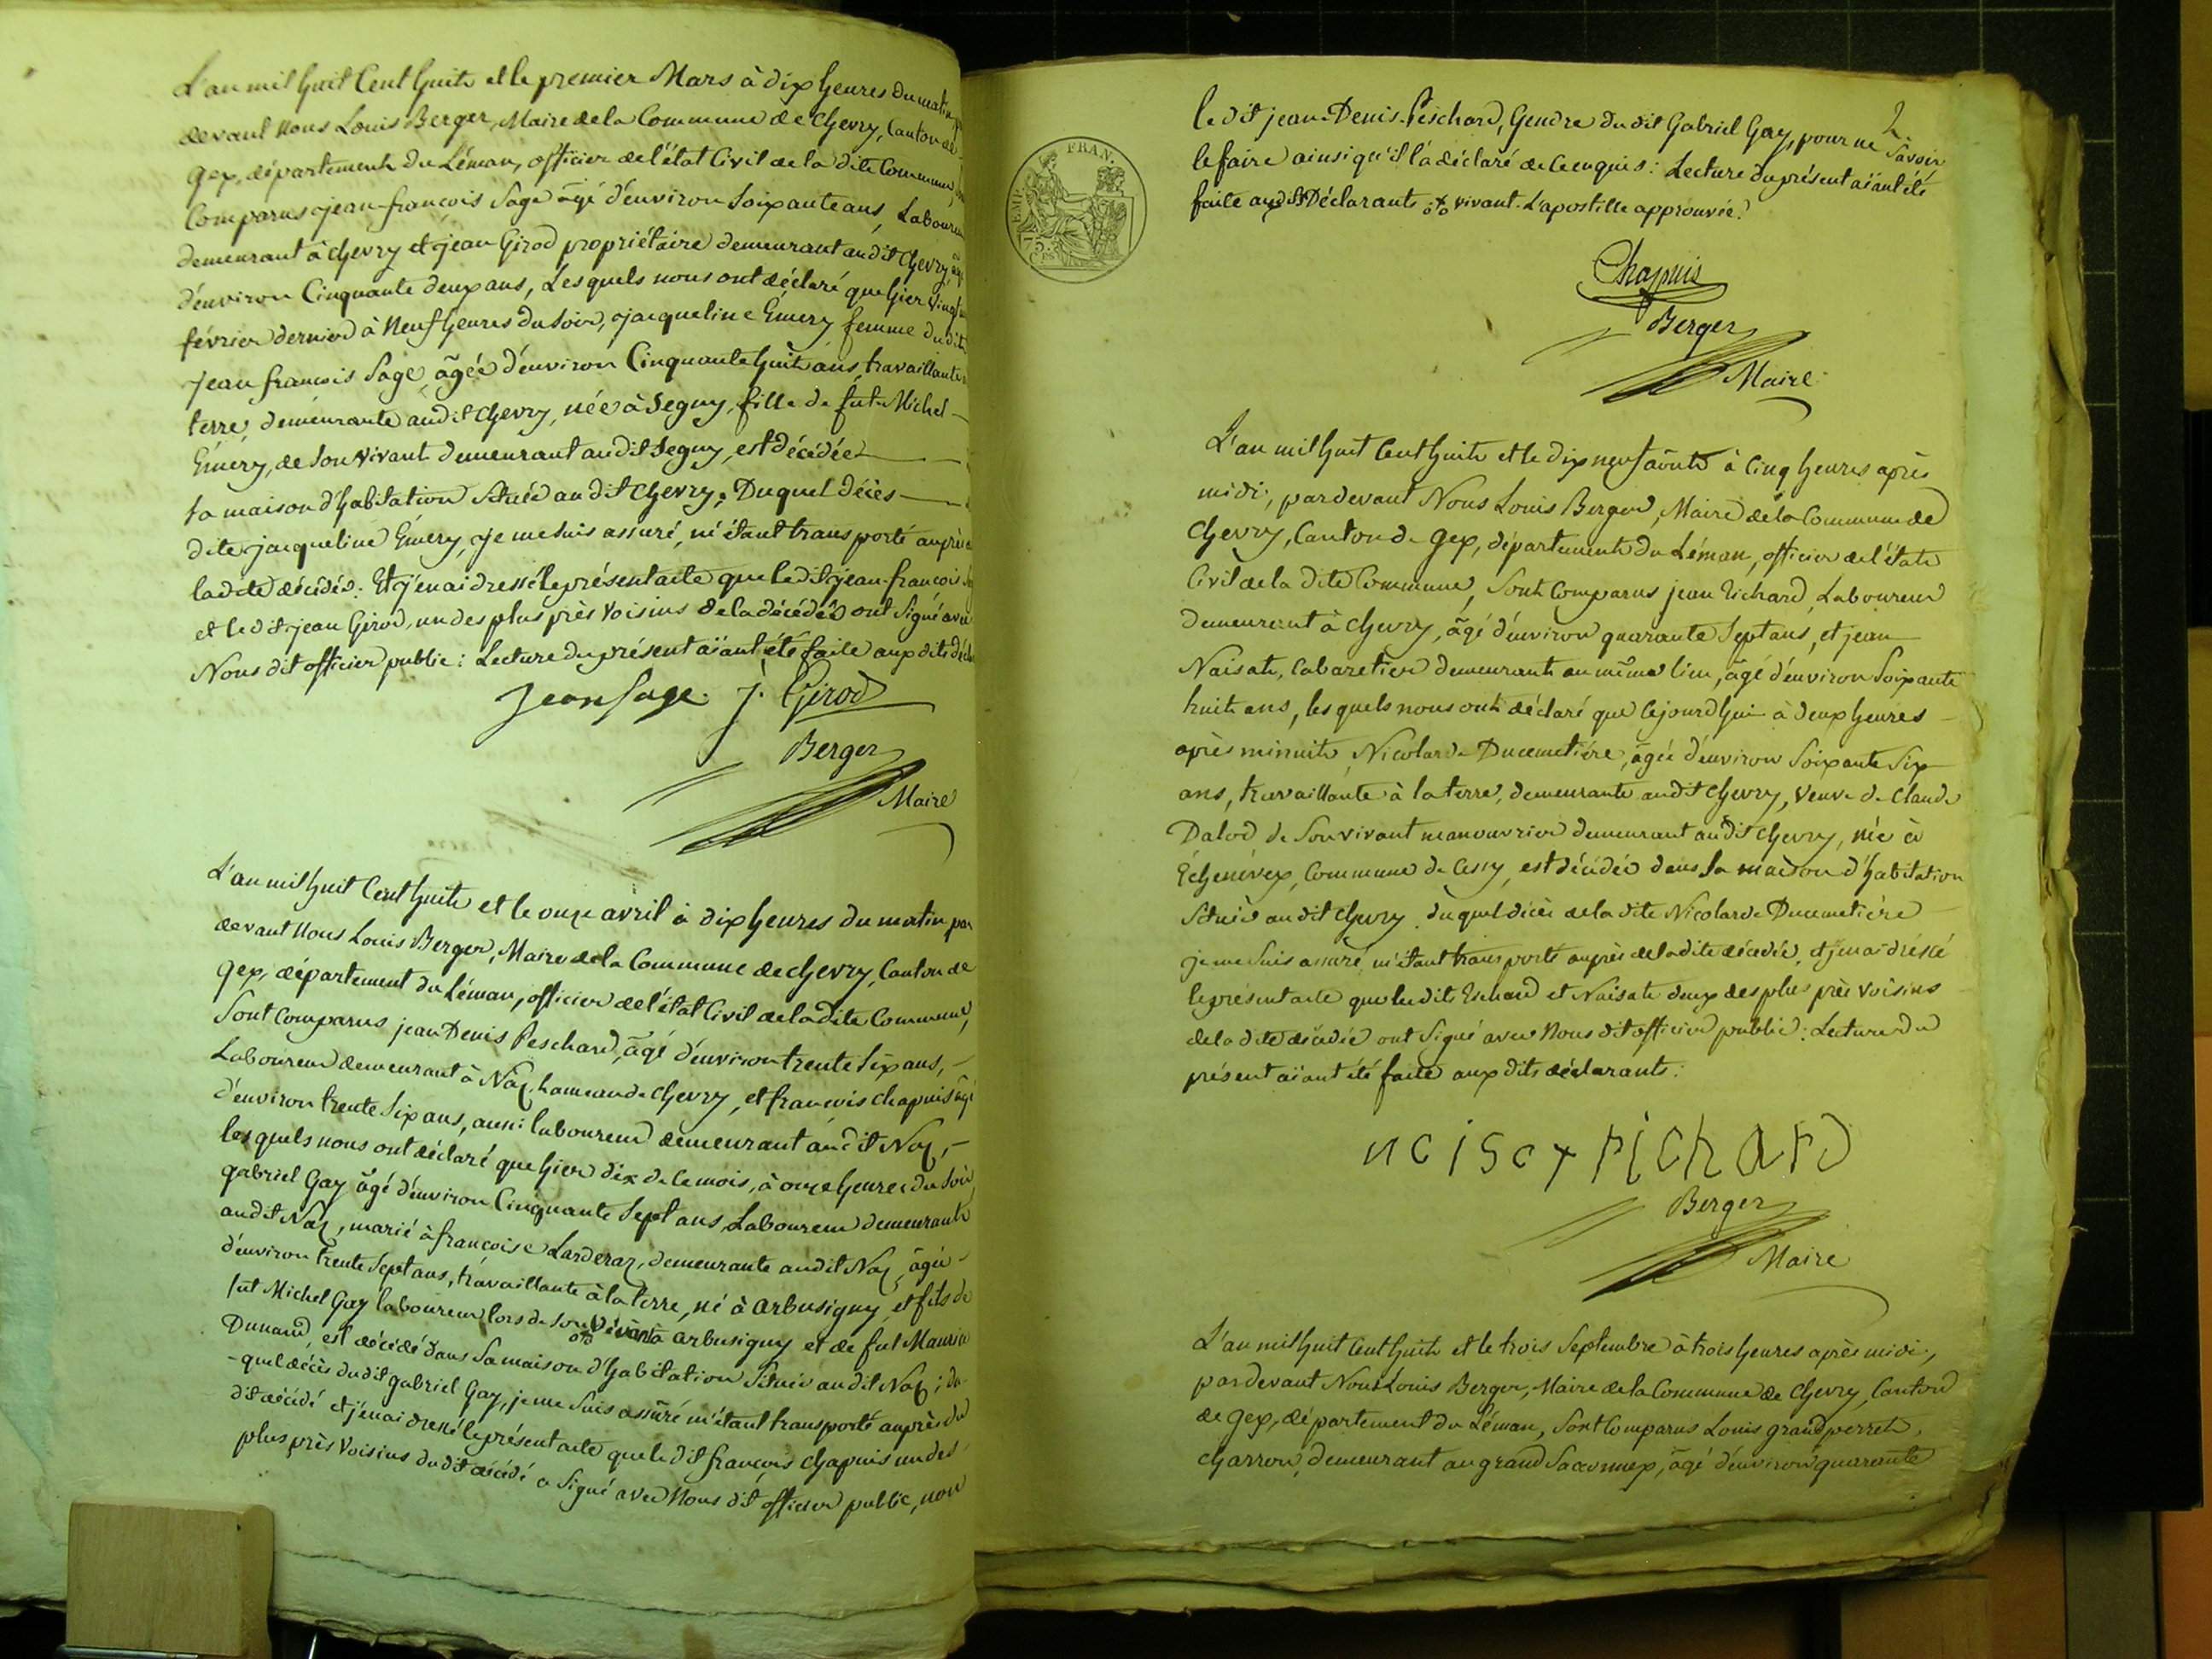 L'an mil huit Cent huit et le premier Mars à dix heures du matin
devant Nous Louis Berger, Maire de la Commune de Chevry, Canton de
Gex, département du Léman, officier de l'état Civil de la dite Commune,
Comparus jean-françois Sage âgé d'environ Soixante ans, Laboureur
demeurant à Chevry et jean Girod propriétaire demeurant au dit Chevry, âgé
d'environ Cinquante deux ans, Lesquels nous ont déclaré que hier
février dernier à Neuf heures du Soir, jacqueline Émery femme du dit
Jean françois Sage, âgée d'environ Cinquante huit ans, travaillante
terre, demeurante au dit Chevry, née à Segny, fille de fut Michel
Émery, de Son vivant demeurant au dit Segny, est décédée
Sa maison d'habitation Située au dit Chevry; Duquel décès
dite jacqueline Émery, je me suis assuré, m'étant transporté auprès
la dite décédée: Et j'en ai dressé le présent acte que le dit jean-françois
et le dit jean Girod, un des plus près Voisins de la décédée ont Signé avec
Nous dit officier public: Lecture du présent aïant été faite aux dits
Jean sage J. Girod
Berger
Maire
L'an mil huit Cent huit et le onze avril à dix heures du matin par
devant Nous Louis Berger, Maire de la Commune de Chevry, Canton de
Gex, département du Léman, officier de l'état Civil de la dite Commune,
Sont Comparus jean Denis Peschard, âgé d'environ trente Six ans,
Laboureur demeurant à Naz, hameau de Chevry, et françois Chapuis âgé
d'environ trente Six ans, aussi laboureur demeurant au dit Naz,
lesquels nous ont déclaré que hier dix de Ce mois, à onze heures du Soir
gabriel Gay âgé d'environ Cinquante Sept ans, Laboureur demeurant
au dit Naz, marié à françoise Larderaz, demeurante au dit Naz, âgée
d'environ trente Sept ans, travaillante à la terre, né à Arbusigny, et fils de
fut Michel Gay laboureur lors de Son vivant à Arbusigny et de fut Maurise
Dunand, est décédé dans Sa maison d'habitation Située au dit Naz; du-
-quel décès du dit gabriel Gay, je me Suis assuré m'étant transporté auprès du
dit décédé et j'en ai dressé le présent acte que le dit françois Chapuis un des
plus près Voisins du dit décédé a Signé avec Nous dit officier public, non
2.
le dit jean-Denis-Péschard, Gendre du dit Gabriel Gay, pour ne Savoir
le faire ainsi qu'il l'a déclaré de Ce enquis: Lecture du présent aïant été
faite aux dits Déclarants vivant. L'apostille approuvée.
FRAN.
75. C.es
Chapuis
Berger
Maire
L'an mil huit Cent huit et le dix neuf août à Cinq heures après
midi, par devant Nous Louis Berger, Maire de la Commune de
Chevry, Canton de Gex, département du Léman, officier de l'état
Civil de la dite Commune, Sont Comparus jean Richard, Laboureur
demeurant à Chevry, âgé d'environ quarante Sept ans, et jean
Naisat, Cabaretier demeurant au même lieu, âgé d'environ Soixante
huit ans, lesquels nous ont déclaré que Cejourd'hui à deux heures
après minuit, Nicolarde Ducemetiére, âgée d'environ Soixante Six
ans, travaillante à la terre, demeurante au dit Chevry, Veuve de Claude
Dalod, de Son vivant manouvrier demeurant au dit Chevry, née à
Échenévex, Commune de Cessy, est décédée dans Sa maison d'habitation
Située au dit Chevry. duquel décès de la dite Nicolarde Ducemetiére
je me Suis assuré, m'étant transporté auprès de la dite décédée, et j'en ai dréssé
le présent acte que les dits Richard et Naisat deux des plus près Voisins
de la dite décédée ont Signé avec Nous dit officier public: Lecture du
présent aïant été faite aux dits déclarants:
naisat richard
Berger
Maire
L'an mil huit Cent huit et le trois Septembre à trois heures après midi,
par devant Nous Louis Berger, Maire de la Commune de Chevry, Canton
de Gex, département du Léman, Sont Comparus Louis grandperret,
Charron, demeurant au grand Saconnex, âgé d'environ quarante